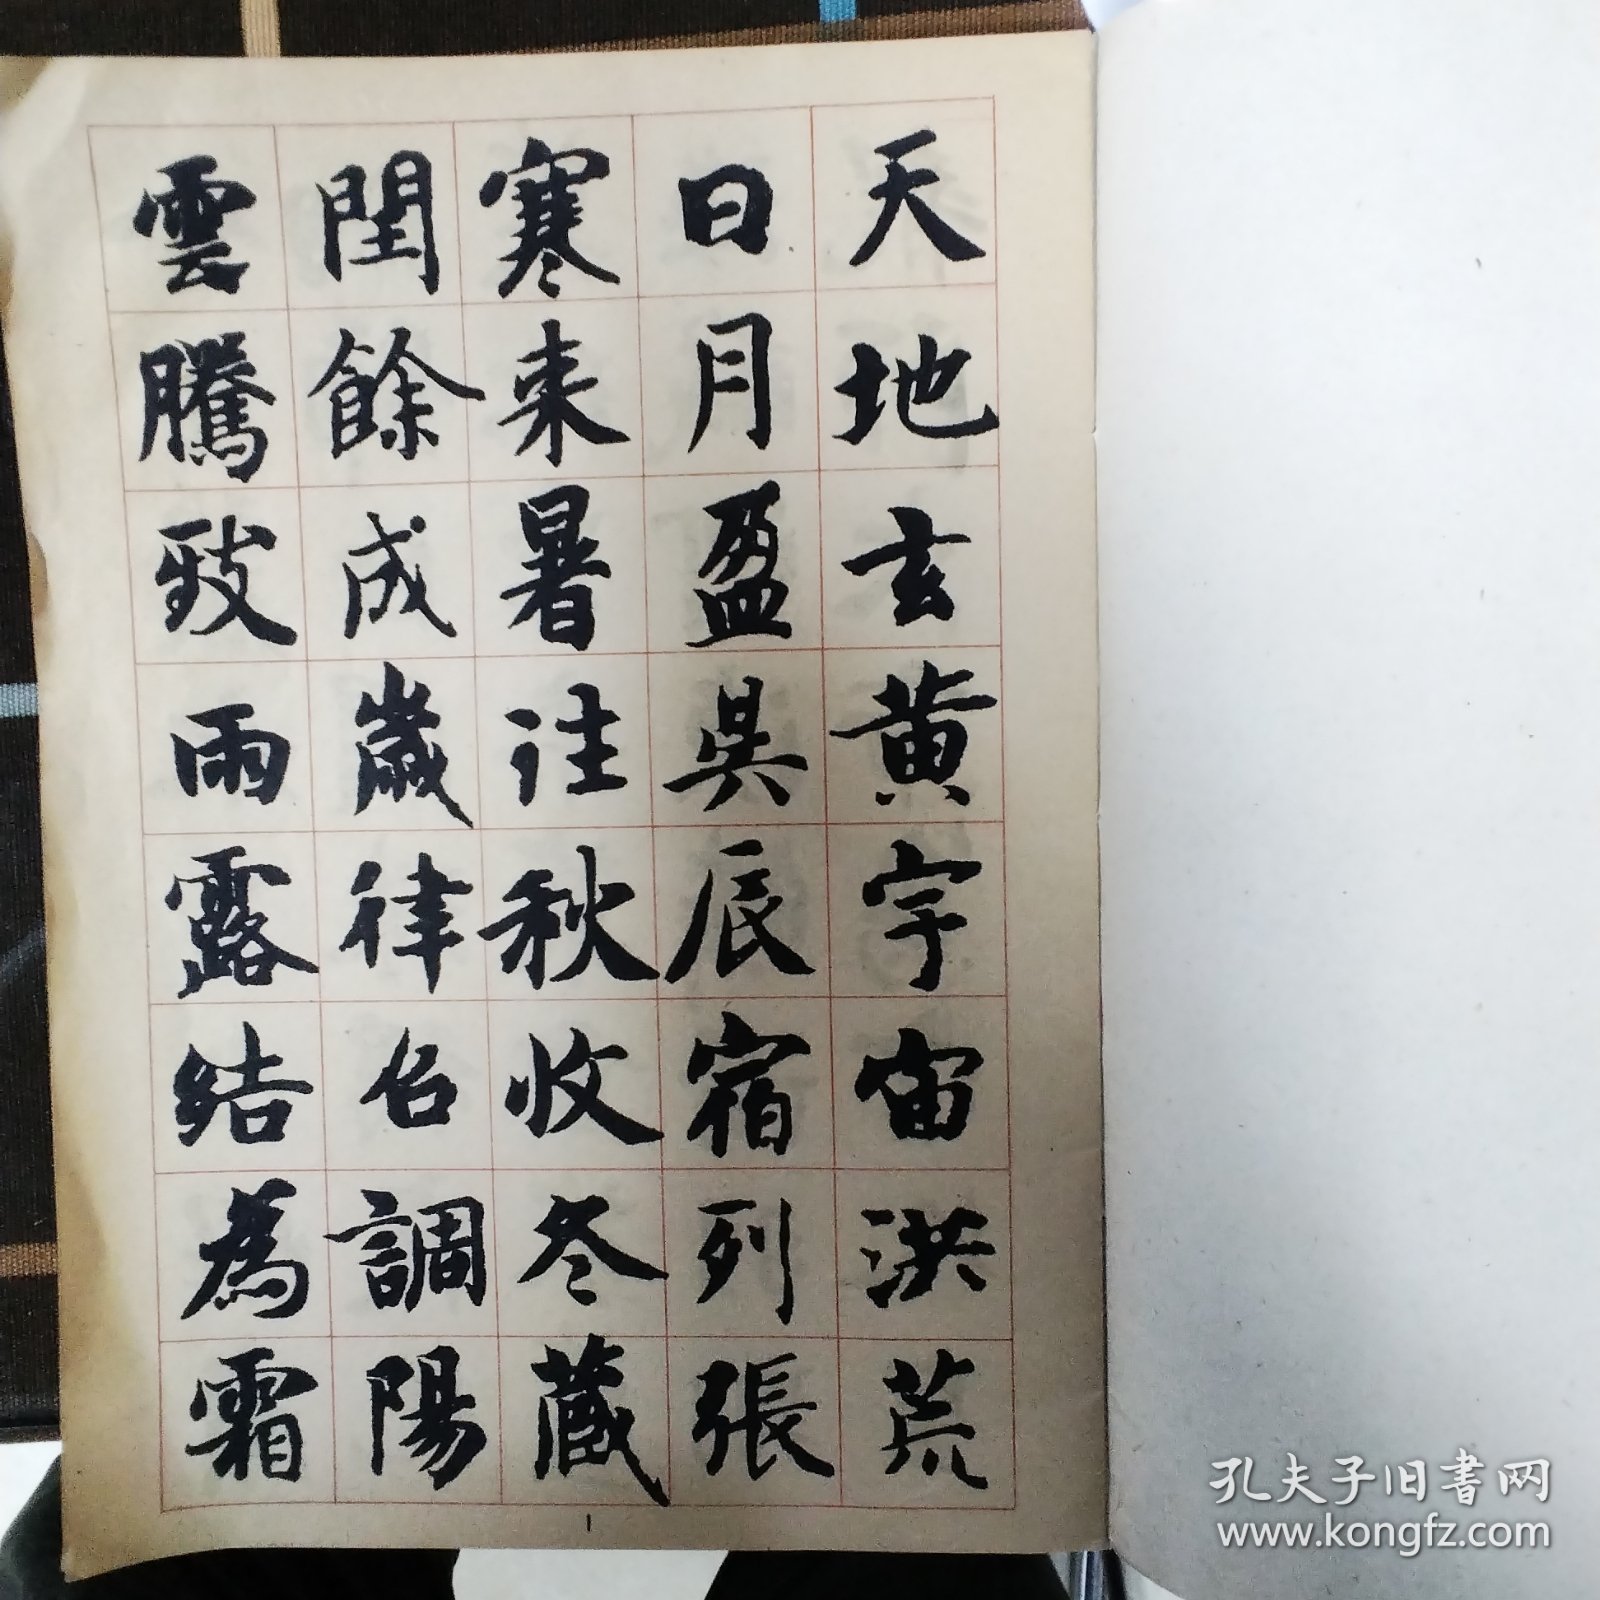 天地玄黄宇宙洪荒
日月盈昃辰宿列張
寒来暑往秋收冬蔵
閏餘成歲律召調陽
雲騰致雨露結為霜
1
孔夫子旧书网
www.kongfz.com